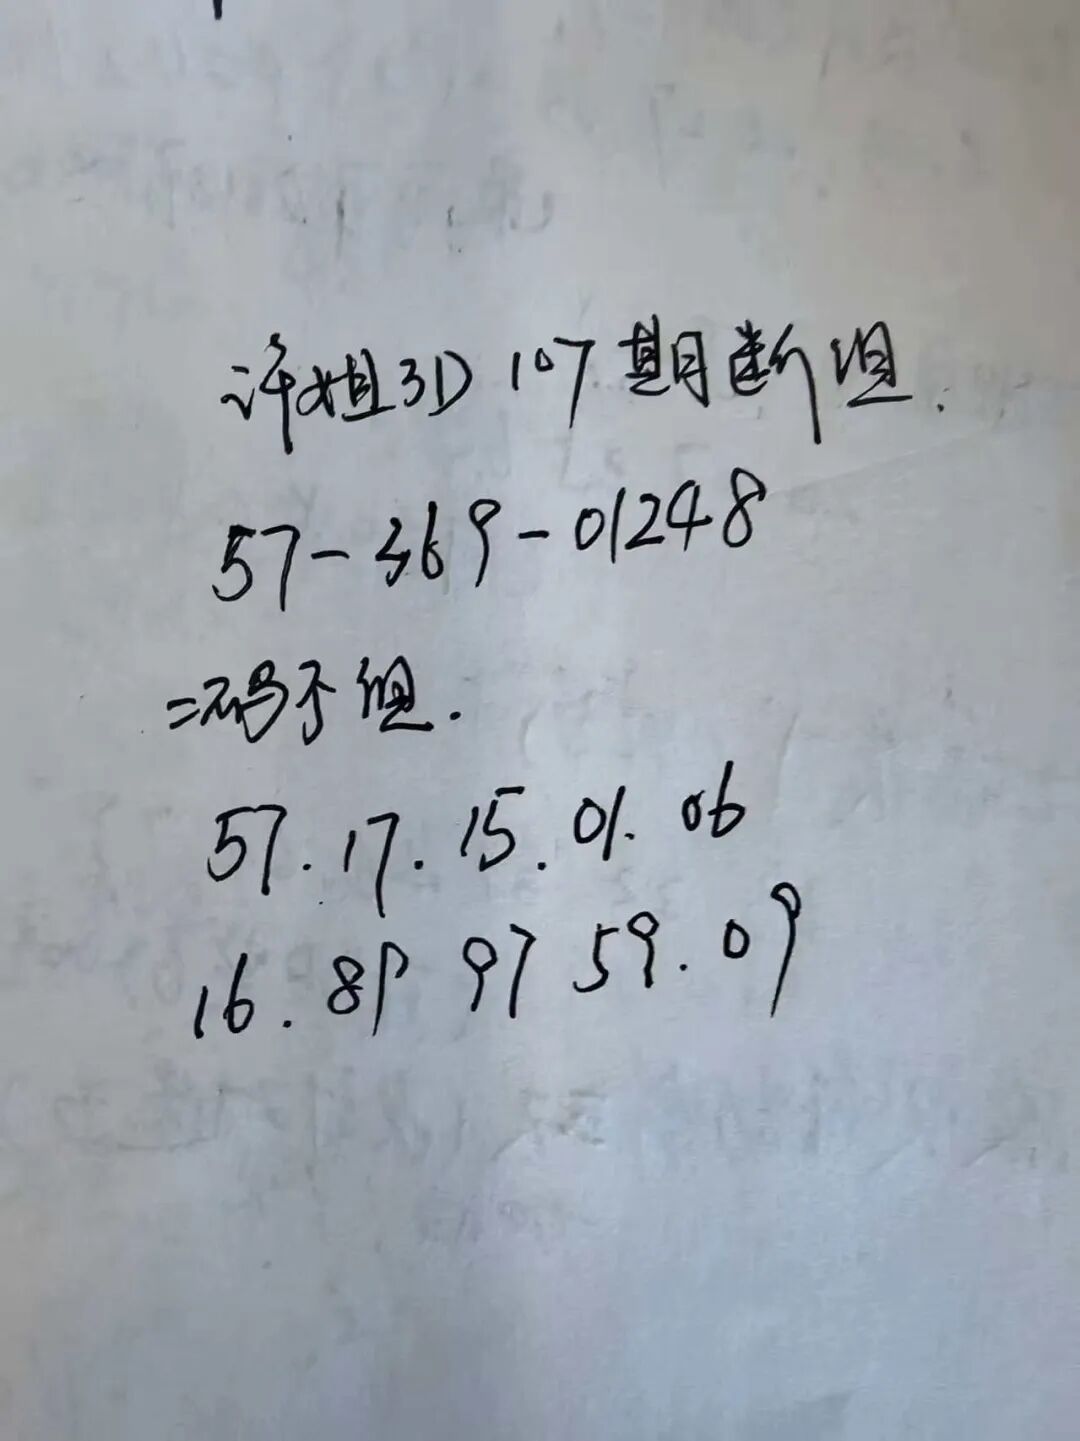 许姐3D 107期断组.
57-369-01248
二码予组.
57.17.15.01.06
16.89 97 59.09